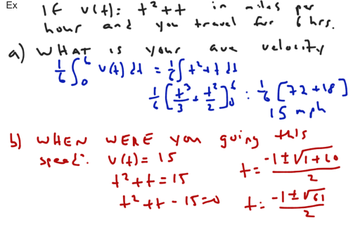 Ex If v(t) = t² + t in miles per
hour and you travel for 6 hrs.
a) WHAT is your ave velocity
1/6 ∫₀⁶ v(t) dt = 1/6 ∫ t² + t dt
1/6 [t³/3 + t²/2]₀⁶ = 1/6 [72 + 18]
15 mph
b) WHEN WERE you going this
speed? v(t) = 15
t² + t = 15
t² + t - 15 = 0
t = -1 ± √1+60 / 2
t = -1 ± √61 / 2